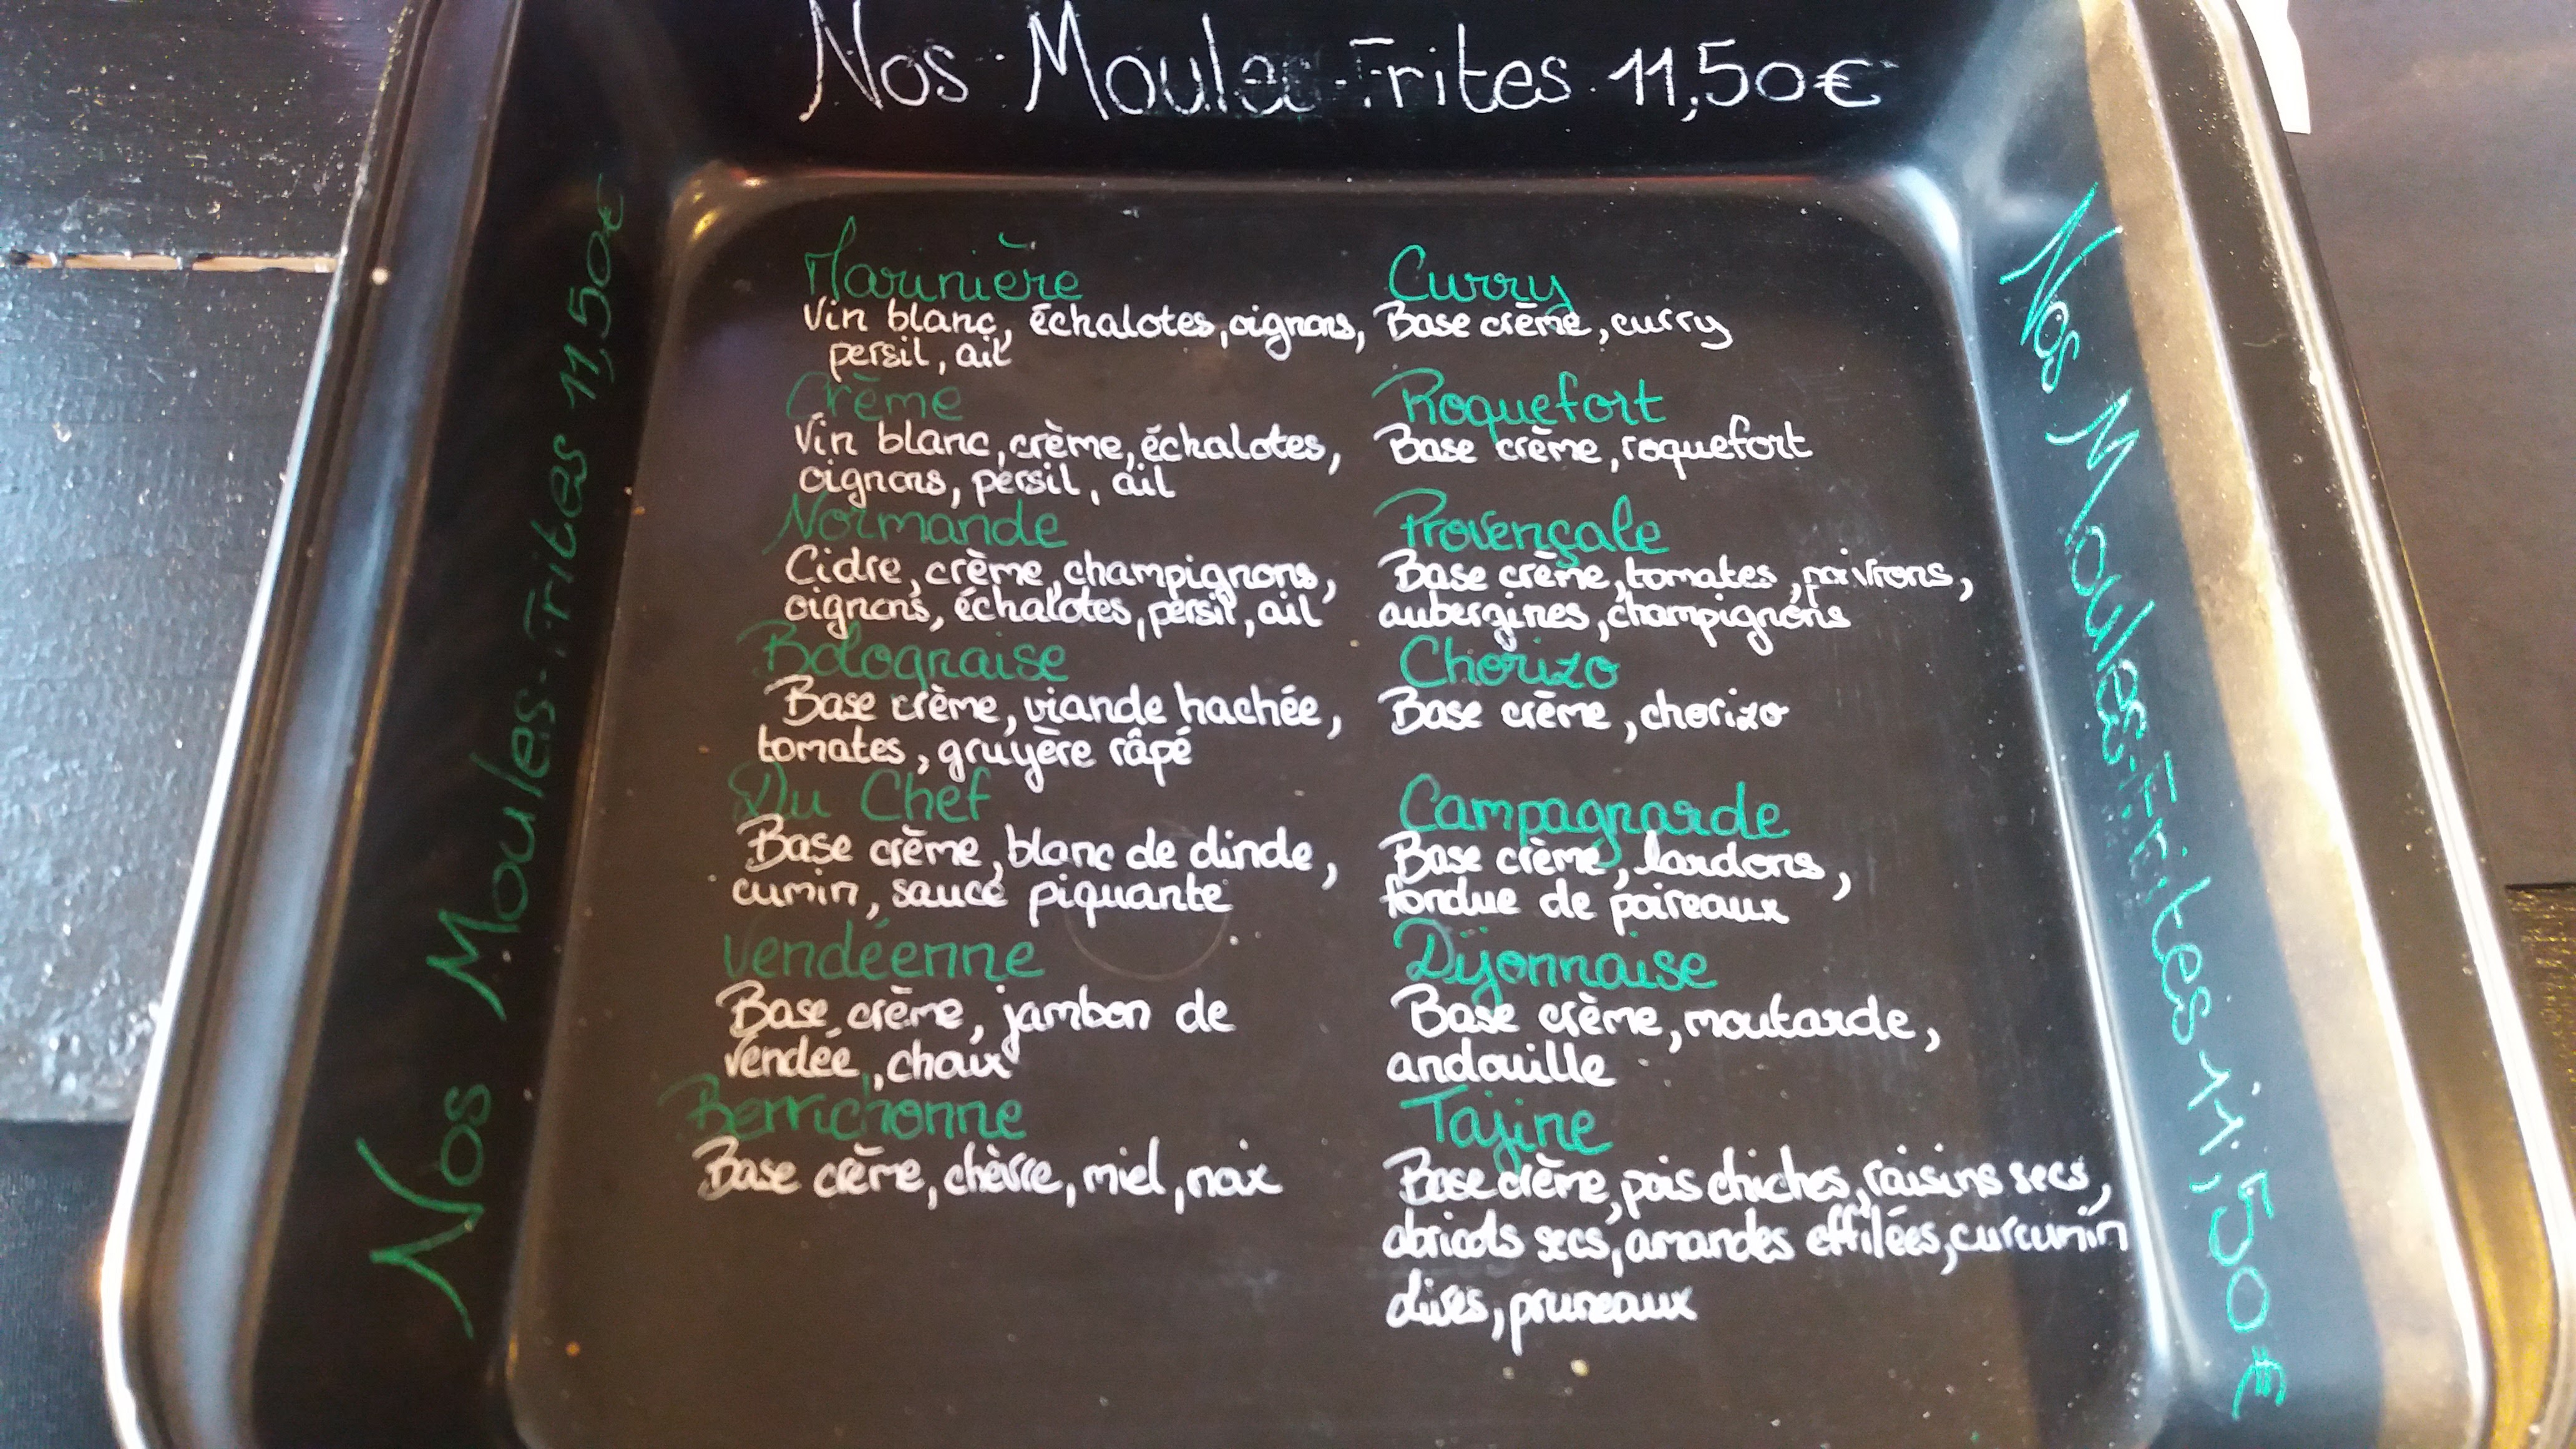 Nos Moules-Frites 11,50€
Nos Moules-Frites 11,50€
Marinière
Vin blanc, échalotes, oignons,
persil, ail
Crème
Vin blanc, crème, échalotes,
oignons, persil, ail
Normande
Cidre, crème, champignons,
oignons, échalotes, persil, ail
Bolognaise
Base crème, viande hachée,
tomates, gruyère râpé
Du Chef
Base crème, blanc de dinde,
cumin, sauce piquante
Vendéenne
Base crème, jambon de
Vendée, choux
Berrichonne
Base crème, chèvre, miel, noix
Curry
Base crème, curry
Roquefort
Base crème, roquefort
Provençale
Base crème, tomates, poivrons,
aubergines, champignons
Chorizo
Base crème, chorizo
Campagnarde
Base crème, lardons,
fondue de poireaux
Dijonnaise
Base crème, moutarde,
andouille
Tajine
Base crème, pois chiches, raisins secs,
abricots secs, amandes effilées, curcumin
olives, pruneaux
Nos Moules-Frites 11,50€